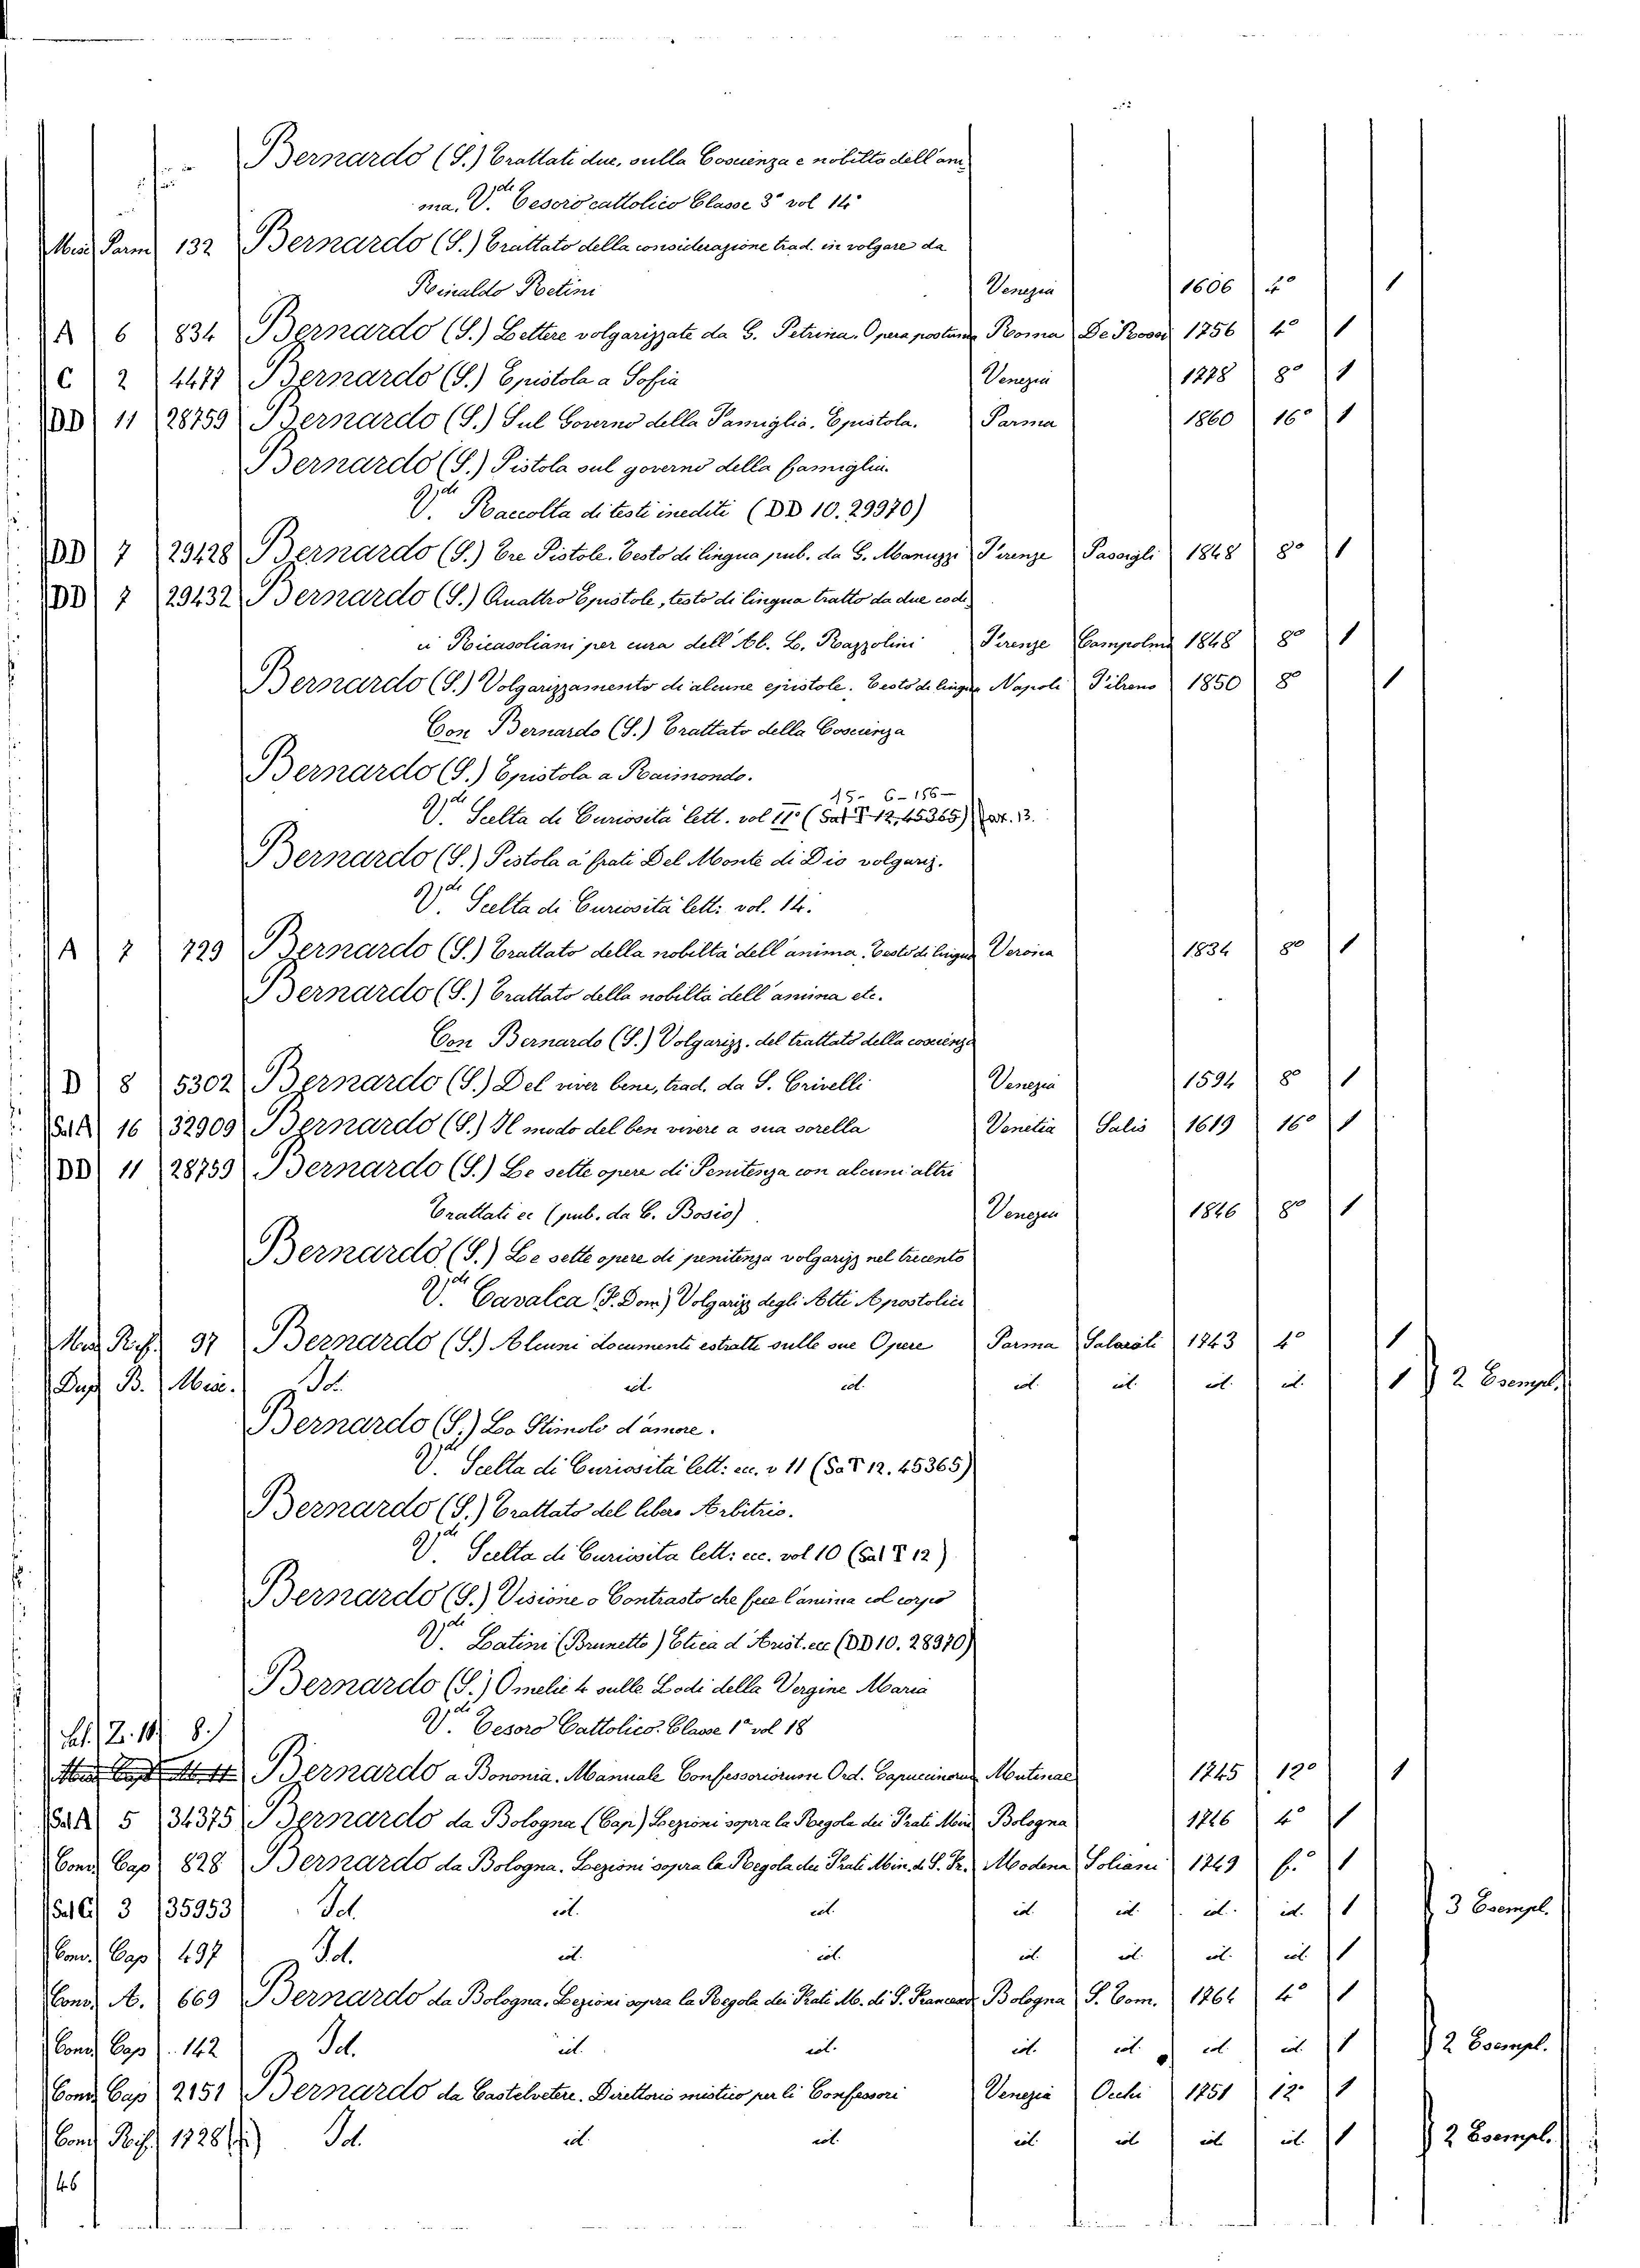 Bernardo (S.) Trattati due, sulla Coscienza e nobiltà dell'ani
ma. V.de Tesoro cattolico Classe 3ª vol 14°
Misc Parm 132 Bernardo (S.) Trattato della considerazione trad. in volgare da
Rinaldo Retini Venezia 1606 4° 1
A 6 834 Bernardo (S.) Lettere volgarizzate da G. Petrina. Opera postuma Roma De Rossi 1756 4° 1
C 2 4477 Bernardo (S.) Epistola a Sofia Venezia 1778 8° 1
DD 11 28759 Bernardo (S.) Sul Governo della Famiglia. Epistola. Parma 1860 16° 1
Bernardo (S.) Pistola sul governo della famiglia.
V.de Raccolta di testi inediti (DD 10. 29970)
DD 7 29428 Bernardo (S.) Tre Pistole. Testo di lingua pub. da G. Manuzzi Firenze Passigli 1848 8° 1
DD 7 29432 Bernardo (S.) Quattro Epistole, testo di lingua tratto da due codi
ci Ricasoliani per cura dell'Ab. L. Razzolini Firenze Campolmi 1848 8° 1
Bernardo (S.) Volgarizzamento di alcune epistole. Testo di lingua Napoli Fibreno 1850 8° 1
Con Bernardo (S.) Trattato della Coscienza
Bernardo (S.) Epistola a Raimondo.
15 - 6 - 156 -
V.de Scelta di Curiosità lett. vol 11° (Sal T 12, 45365) 13.
Bernardo (S.) Pistola a' frati Del Monte di Dio volgariz.
V.de Scelta di Curiosità lett: vol. 14.
A 7 729 Bernardo (S.) Trattato della nobiltà dell'anima. Testo di lingua Verona 1834 8° 1
Bernardo (S.) Trattato della nobiltà dell'anima etc.
Con Bernardo (S.) Volgarizz. del trattato della coscienza
D 8 5302 Bernardo (S.) Del viver bene, trad. da S. Crivelli Venezia 1594 8° 1
Sal A 16 32909 Bernardo (S.) Il modo del ben vivere a sua sorella Venetia Salis 1619 16° 1
DD 11 28759 Bernardo (S.) Le sette opere di Penitenza con alcuni altri
Trattati ec (pub. da C. Bosio) Venezia 1846 8° 1
Bernardo (S.) Le sette opere di penitenza volgarizz nel trecento
V.de Cavalca (F. Dom) Volgarizz degli Atti Apostolici
Misc Rif. 97 Bernardo (S.) Alcuni documenti estratti sulle sue Opere Parma Salaroli 1743 4° 1
Dup B. Misc. Id. id. id. id. id. id. id. 1 2 Esempl.
Bernardo (S.) Lo Stimolo d'amore.
V.de Scelta di Curiosità lett: ecc. v 11 (Sal T 12. 45365)
Bernardo (S.) Trattato del libero Arbitrio.
V.de Scelta di Curiosità lett: ecc. vol 10 (Sal T 12)
Bernardo (S.) Visione o Contrasto che fece l'anima col corpo
V.de Latini (Brunetto) Etica d'Arist. ecc (DD 10. 28970)
Bernardo (S.) Omelie 4 sulle Lodi della Vergine Maria
V.de Tesoro Cattolico. Classe 1ª vol 18
Sal. Z. 10 8.
Bernardo a Bononia. Manuale Confessoriorum Ord. Capuccinorum Mutinae 1745 12° 1
Sal A 5 34375 Bernardo da Bologna (Cap) Lezioni sopra la Regola dei Frati Min Bologna 1746 4° 1
Conv Cap 828 Bernardo da Bologna. Lezioni sopra la Regola dei Frati Min. di S. Fr. Modena Soliani 1749 f. 1
Sal C 3 35953 Id. id. id. id. id. id. id. 1 3 Esempl.
Conv. Cap 497 Id. id. id. id. id. id. id. 1
Conv A. 669 Bernardo da Bologna. Lezioni sopra la Regola dei Frati M. di S. Francesco Bologna S. Tom. 1764 4° 1
Conv Cap 142 Id. id. id. id. id. id. id. 1 2 Esempl.
Conv Cap 2151 Bernardo da Castelvetere. Direttorio mistico per li Confessori Venezia Occhi 1751 12° 1
Conv Rif. 1728 Id. id. id. id. id. id. id. 1 2 Esempl.
46